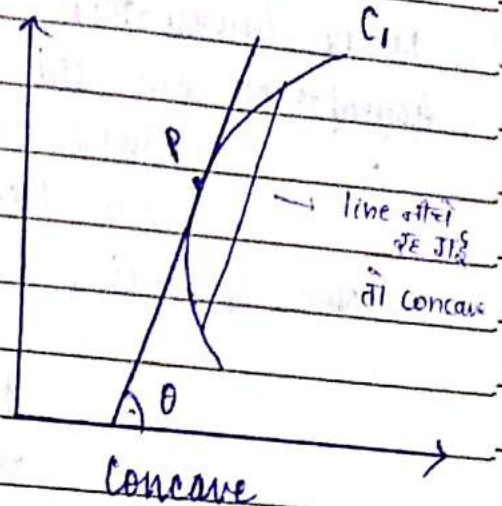 C₁
P
→ line नीचे
रह गई
तो concave
θ
Concave